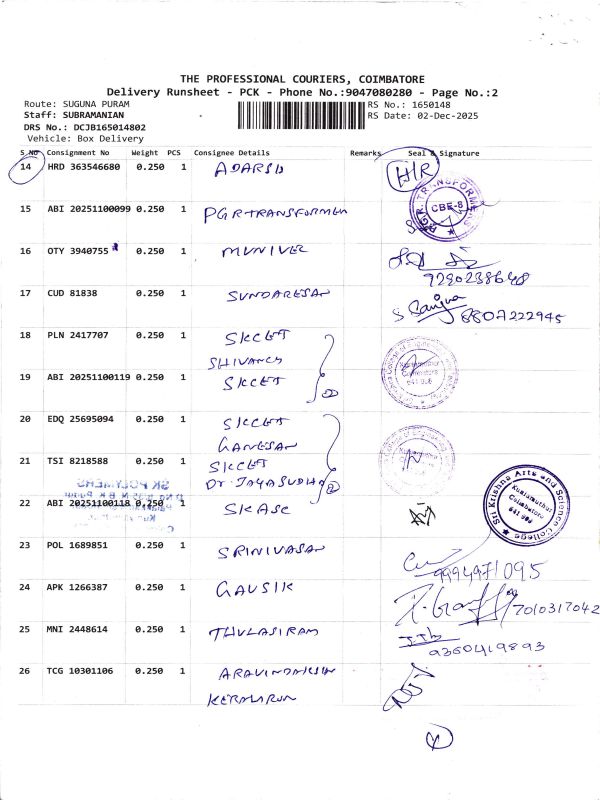 THE PROFESSIONAL COURIERS, COIMBATORE
Delivery Runsheet - PCK - Phone No.:9047080280 - Page No.:2
Route: SUGUNA PURAM
RS No.: 1650148
Staff: SUBRAMANIAN
RS Date: 02-Dec-2025
DRS No.: DCJB165014802
Vehicle: Box Delivery
S.No Consignment No Weight PCS Consignee Details Remarks Seal & Signature
14 HRD 363546680 0.250 1 ADARSH H/R
15 ABI 20251100099 0.250 1 PGR TRANSFORMER P.G.R. TRANSFORMERS CBE-8
16 OTY 3940755 0.250 1 MUNIVEL
9280238648
17 CUD 81838 0.250 1 SUNDARESAN S Sanjna 8807222945
18 PLN 2417707 0.250 1 SKCET
SHIVANG
19 ABI 20251100119 0.250 1 SKCET 2
20 EDQ 25695094 0.250 1 SKCET
GANESAN
21 TSI 8218588 0.250 1 SKCET
Dr. JAYASUDHA 2
SK POLYMERS
22 ABI 20251100118 0.250 1 SKASC Sri Krishna Arts and Science College Kuniamuthur Coimbatore 641 008
23 POL 1689851 0.250 1 SRINIVASAN
9994971095
24 APK 1266387 0.250 1 GAUSIK 7010317042
25 MNI 2448614 0.250 1 THULASIRAM
9360419893
26 TCG 10301106 0.250 1 ARAVINDAKSAN